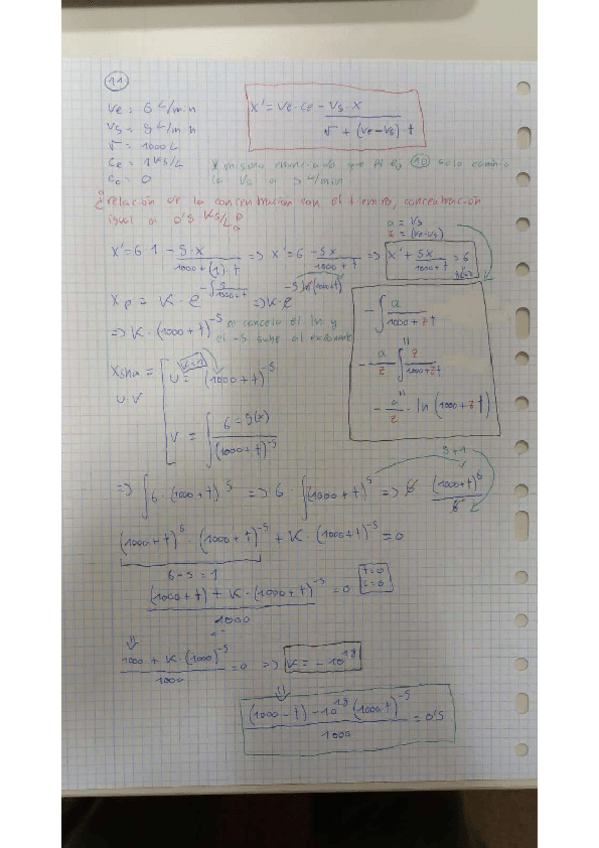 11
Ve = 6 L/min
Vs = 5 L/min
V = 1000 L
Ce = 1 Ks/L
C0 = 0
X' = Ve · Ce - Vs · X / V + (Ve - Vs) · t
* mismo enunciado que el ej 10 solo cambia
la Vs a 5 L/min
¿relación de la concentracion con el tiempo, concentración
igual a 0'5 Ks/L?
a = Vs
z = (Ve-Vs)
X' = 6 · 1 - 5·X / 1000 + (1) · t => X' = 6 - 5X / 1000 + t => X' + 5X / 1000 + t = 6
g(x)
Xp = K · e^-∫ 5 / 1000+t => K · e^-5 ln(1000+t)
=> K · (1000 + t)^-5 se cancela el ln y
el -5 sube al exponente
- ∫ a / 1000 + z t
- a / z ∫ z / 1000 + z t
- a / z · ln (1000 + z t)
K=1
U = (1000 + t)^-5
U · V
V = ∫ 6 = g(x) / (1000 + t)^-5
5+1
=> ∫ 6 · (1000 + t)^5 => 6 ∫ (1000 + t)^5 => 6 (1000+t)^6 / 6
(1000 + t)^6 · (1000 + t)^-5 + K · (1000+t)^-5 = 0
6 - 5 = 1
(1000 + t) + K · (1000 + t)^-5 / 1000 = 0
t=0
c=0
1000 + K · (1000)^-5 / 1000 = 0 => K = - 10^18
(1000 - t) - 10^18 (1000 t)^-5 / 1000 = 0'5